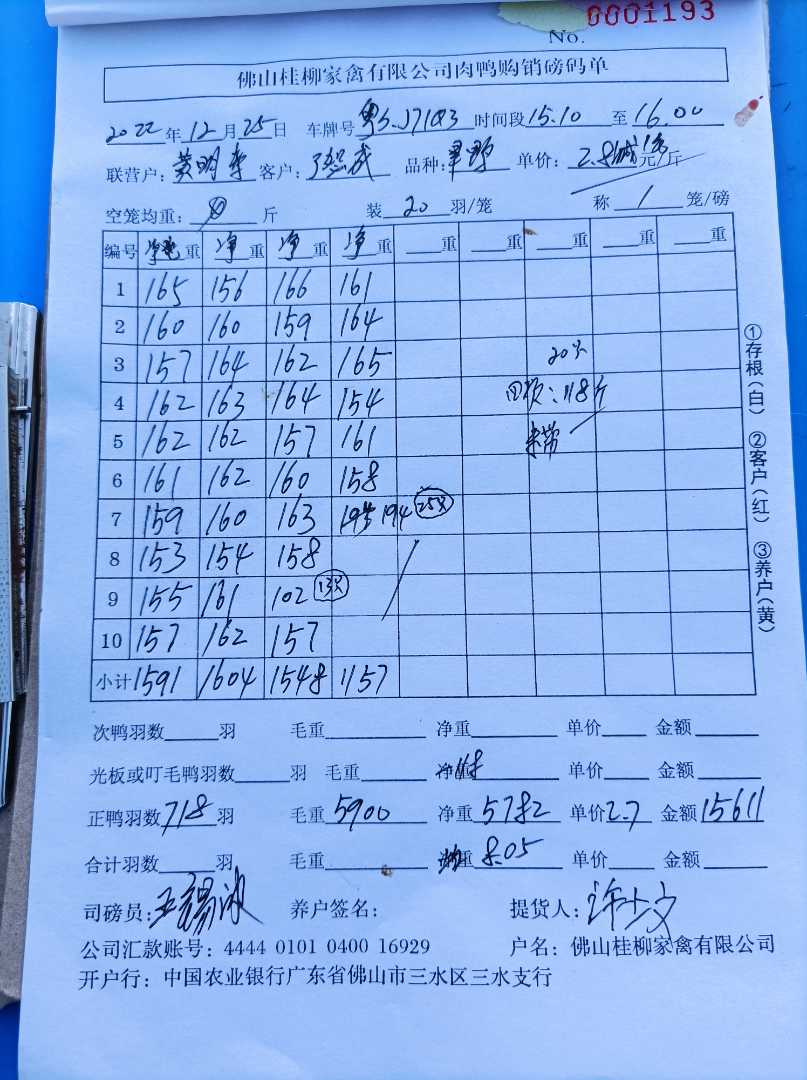 0001193
No.
佛山桂柳家禽有限公司肉鸭购销磅码单
2022年12月25日 车牌号 粤S.J71Q3 时间段 15.10 至 16.00
联营户: 黄明李 客户: 成 品种: 单价: 2.8 元/斤
空笼均重: 0 斤 装 20 羽/笼 称 1 笼/磅
编号 净重 净重 净重 净重 重 重 重 重 重
1 165 156 166 161
2 160 160 159 164
3 157 164 162 165 20只
4 162 163 164 154 四项: 118斤
5 162 162 157 161
6 161 162 160 158
7 159 160 163 194 25只
8 153 154 158
9 155 161 102 13只
10 157 162 157
小计 1591 1604 1548 1157
①存根(白) ②客户(红) ③养户(黄)
次鸭羽数 羽 毛重 净重 单价 金额
光板或叮毛鸭羽数 羽 毛重 净重 118 单价 金额
正鸭羽数 718 羽 毛重 5900 净重 5782 单价 2.7 金额 15611
合计羽数 羽 毛重 重 8.05 单价 金额
司磅员: 王锡冰 养户签名: 提货人: 许文
公司汇款账号: 4444 0101 0400 16929 户名: 佛山桂柳家禽有限公司
开户行: 中国农业银行广东省佛山市三水区三水支行